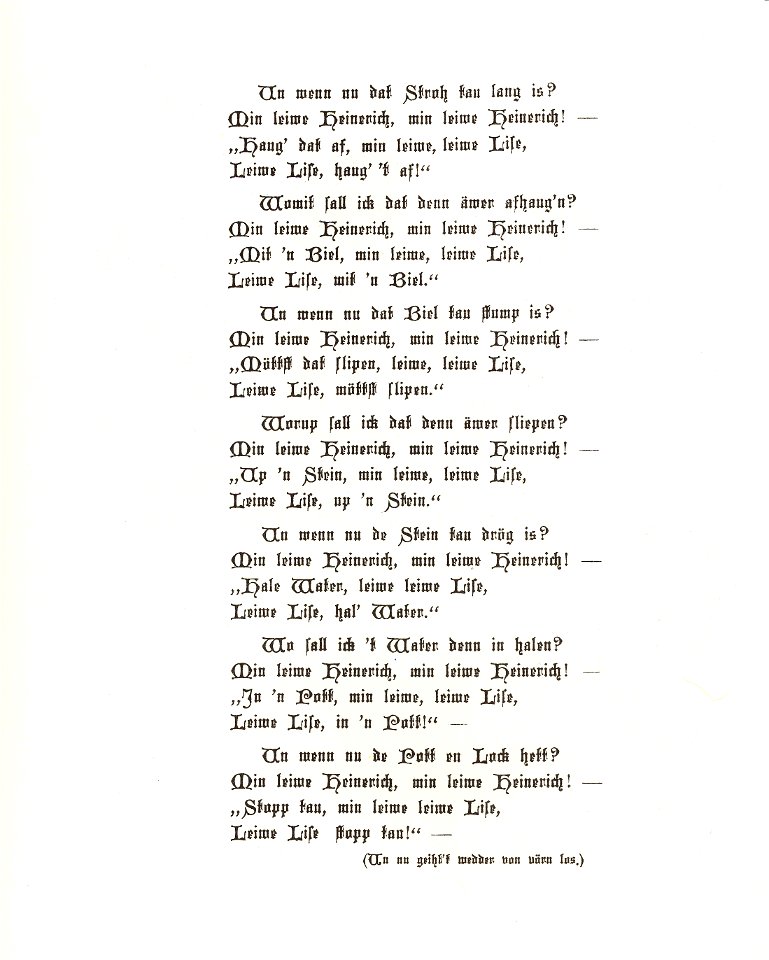 Un wenn nu dat Stroh tau lang is?
Min leiwe Heinerich, min leiwe Heinerich! —
„Haug' dat af, min leiwe, leiwe Lise,
Leiwe Lise, haug' 't af!“
Womit sall ick dat denn äwer afhaug'n?
Min leiwe Heinerich, min leiwe Heinerich! —
„Mit 'n Biel, min leiwe, leiwe Lise,
Leiwe Lise, mit 'n Biel.“
Un wenn nu dat Biel tau stump is?
Min leiwe Heinerich, min leiwe Heinerich! —
„Möttst dat slipen, leiwe, leiwe Lise,
Leiwe Lise, möttst slipen.“
Worup sall ick dat denn äwer sliepen?
Min leiwe Heinerich, min leiwe Heinerich! —
„Up 'n Stein, min leiwe, leiwe Lise,
Leiwe Lise, up 'n Stein.“
Un wenn nu de Stein tau drög is?
Min leiwe Heinerich, min leiwe Heinerich! —
„Hale Water, leiwe leiwe Lise,
Leiwe Lise, hal' Water.“
Wo sall ick 't Water denn in halen?
Min leiwe Heinerich, min leiwe Heinerich! —
„In 'n Pott, min leiwe, leiwe Lise,
Leiwe Lise, in 'n Pott!“ —
Un wenn nu de Pott en Lock hett?
Min leiwe Heinerich, min leiwe Heinerich! —
„Stopp tau, min leiwe leiwe Lise,
Leiwe Lise stopp tau!“ —
(Un nu geiht't wedder von vörn los.)